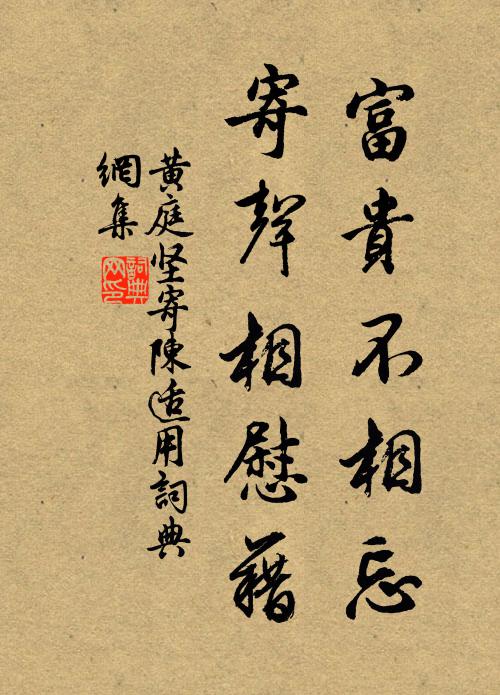 富貴不相忘
寄聲相慰藉
黄庭坚寄陳适用詞典
網集
詞典
网印